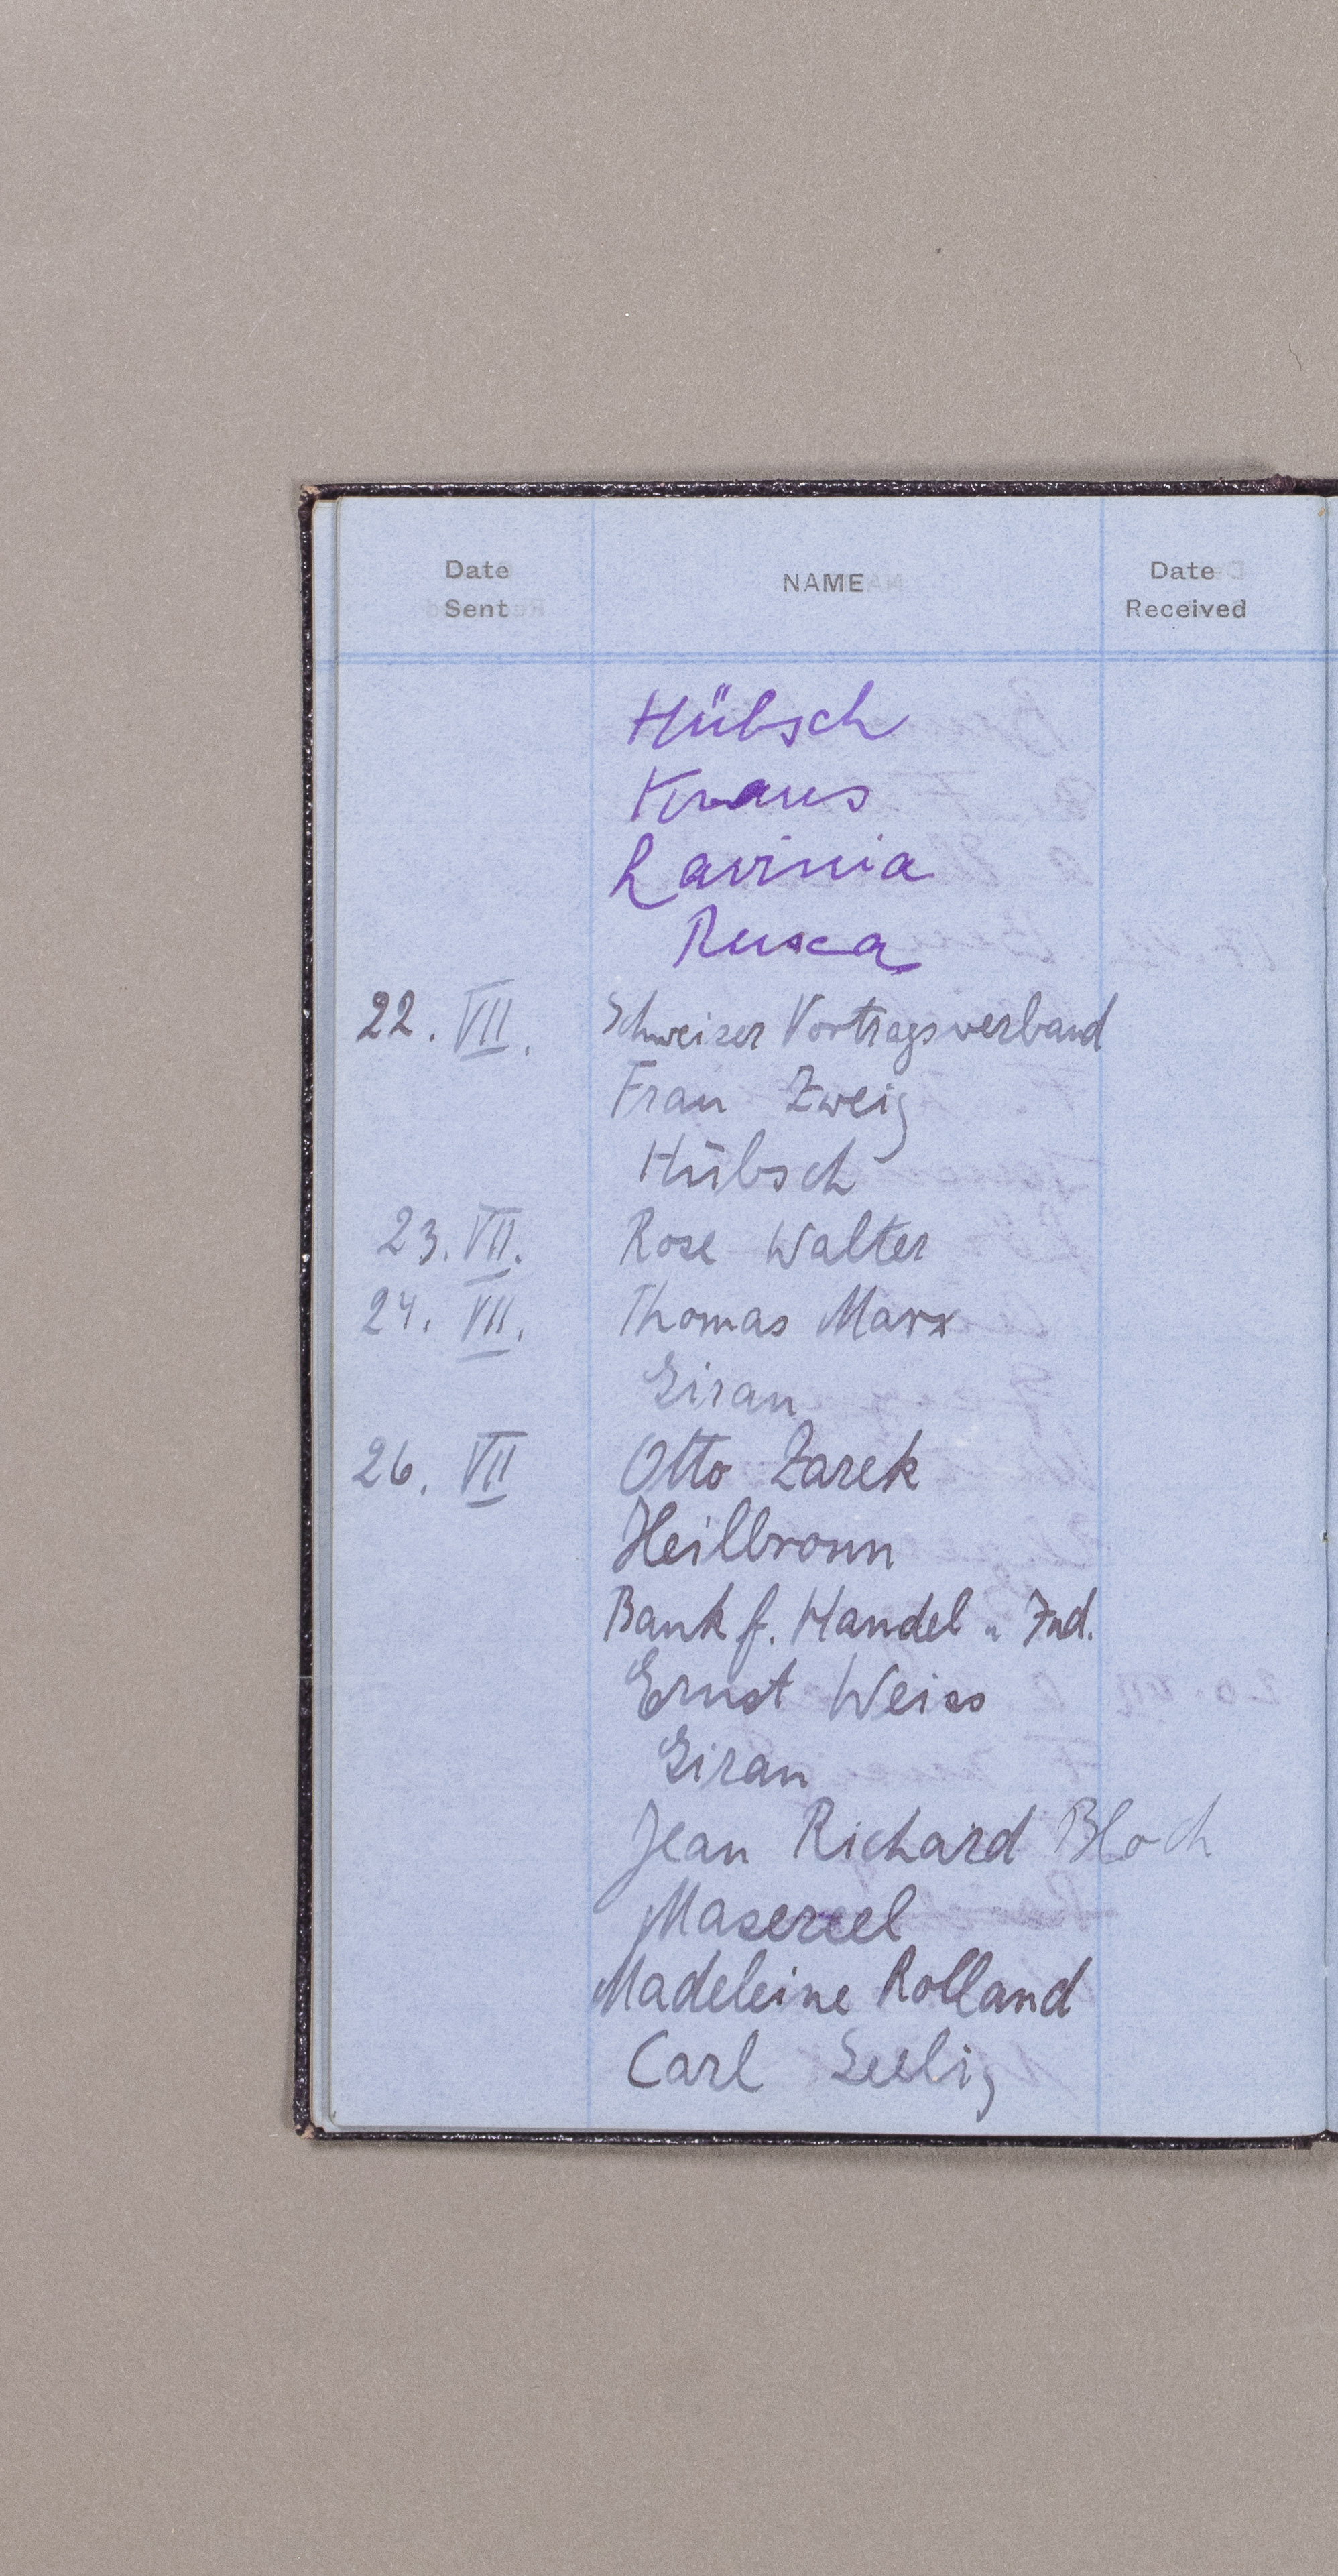 Date Sent NAME Date Received
Hübsch
Kraus
Lavinia
Rusca
22. VII. Schweizer Vortragsverband
Frau Zweig
Hübsch
23. VII. Rose Walter
24. VII. Thomas Marx
Eiran
26. VII Otto Zarek
Heilbronn
Bank f. Handel u Ind.
Ernst Weiss
Eiran
Jean Richard Bloch
Masereel
Madeleine Rolland
Carl Seelig